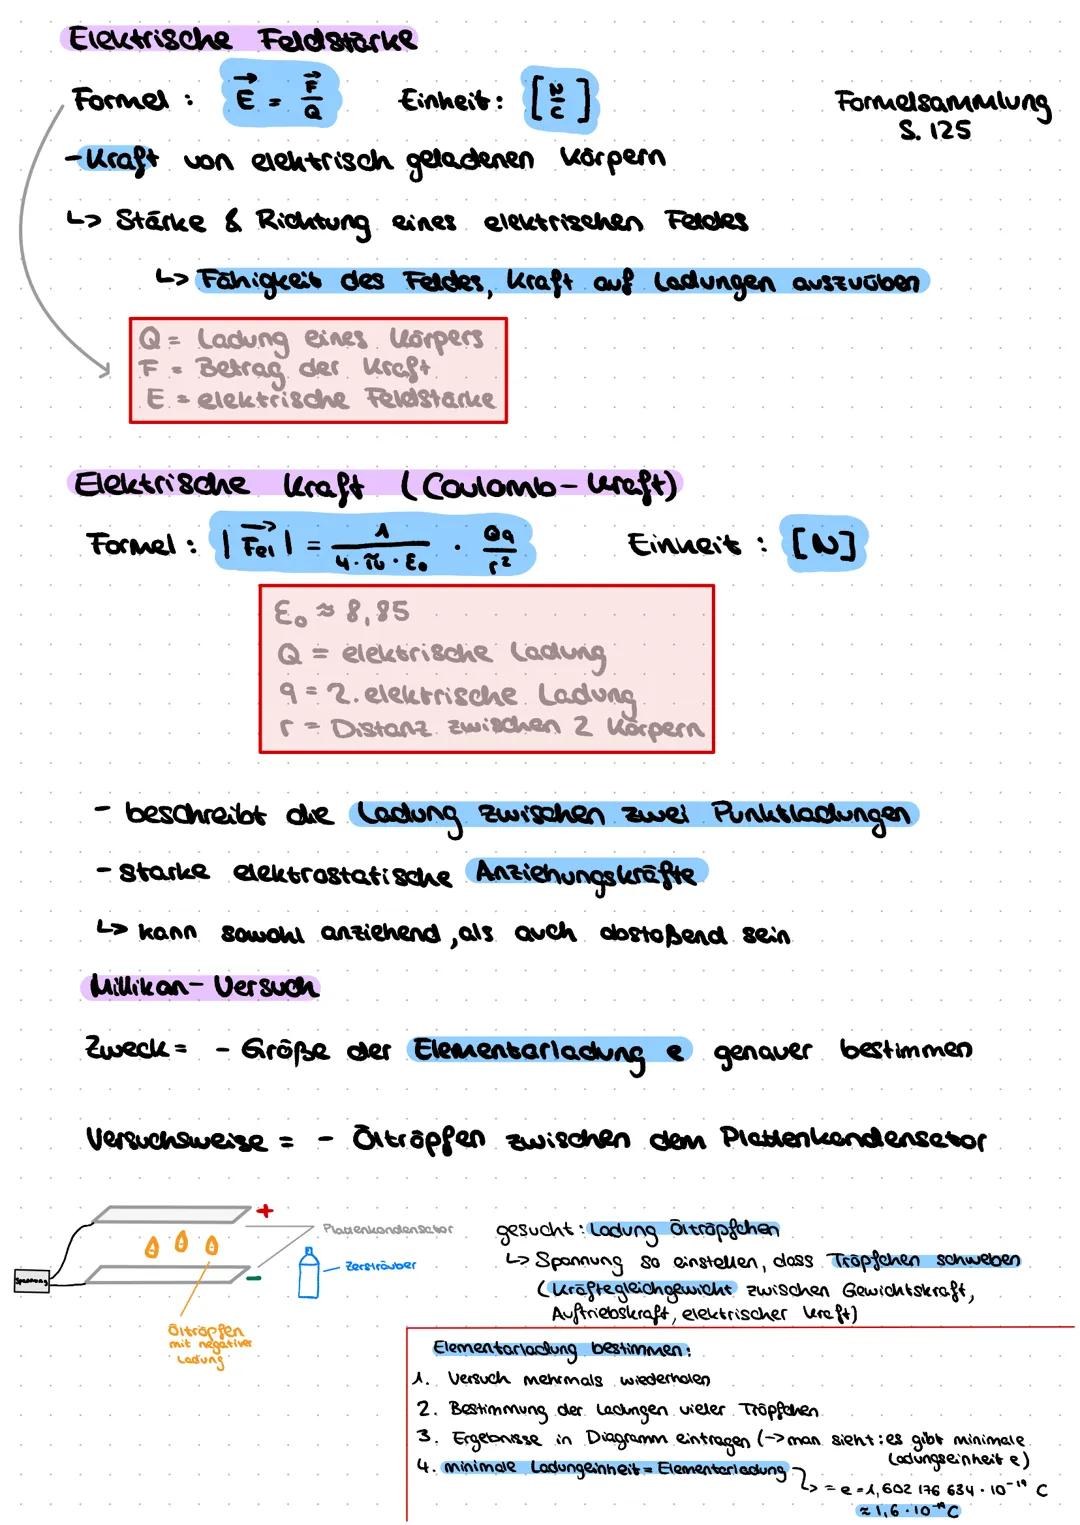 Elektrische Feldstärke
Formel : E = F/Q Einheit : [N/C]
Formelsammlung
S. 125
- Kraft von elektrisch geladenen Körpern
↳ Stärke & Richtung eines elektrischen Feldes
↳ Fähigkeit des Feldes, Kraft auf Ladungen auszuüben
Q = Ladung eines Körpers
F = Betrag der Kraft
E = elektrische Feldstärke
Elektrische Kraft (Coulomb-Kraft)
Formel : |Fel| = 1/(4·π·ε₀) · Qq/r² Einheit : [N]
ε₀ ≈ 8,85
Q = elektrische Ladung
q = 2. elektrische Ladung
r = Distanz zwischen 2 Körpern
- beschreibt die Ladung zwischen zwei Punktladungen
- starke elektrostatische Anziehungskräfte
↳ kann sowohl anziehend, als auch abstoßend sein
Millikan-Versuch
Zweck = - Größe der Elementarladung e genauer bestimmen
Versuchsweise = - Öltröpfen zwischen dem Plattenkondensator
+
Plattenkondensator
Spannung
-
Zersträuber
Öltröpfen
mit negativer
Ladung
gesucht : Ladung Öltröpfchen
↳ Spannung so einstellen, dass Tröpfchen schweben
(Kräftegleichgewicht zwischen Gewichtskraft,
Auftriebskraft, elektrischer Kraft)
Elementarladung bestimmen:
1. Versuch mehrmals wiederholen
2. Bestimmung der Ladungen vieler Tröpfchen
3. Ergebnisse in Diagramm eintragen (->man sieht : es gibt minimale
Ladungseinheit e)
4. minimale Ladungeinheit = Elementarladung
↳ = e = 1,602 176 634 · 10⁻¹⁹ C
≈ 1,6 · 10⁻¹⁹ C